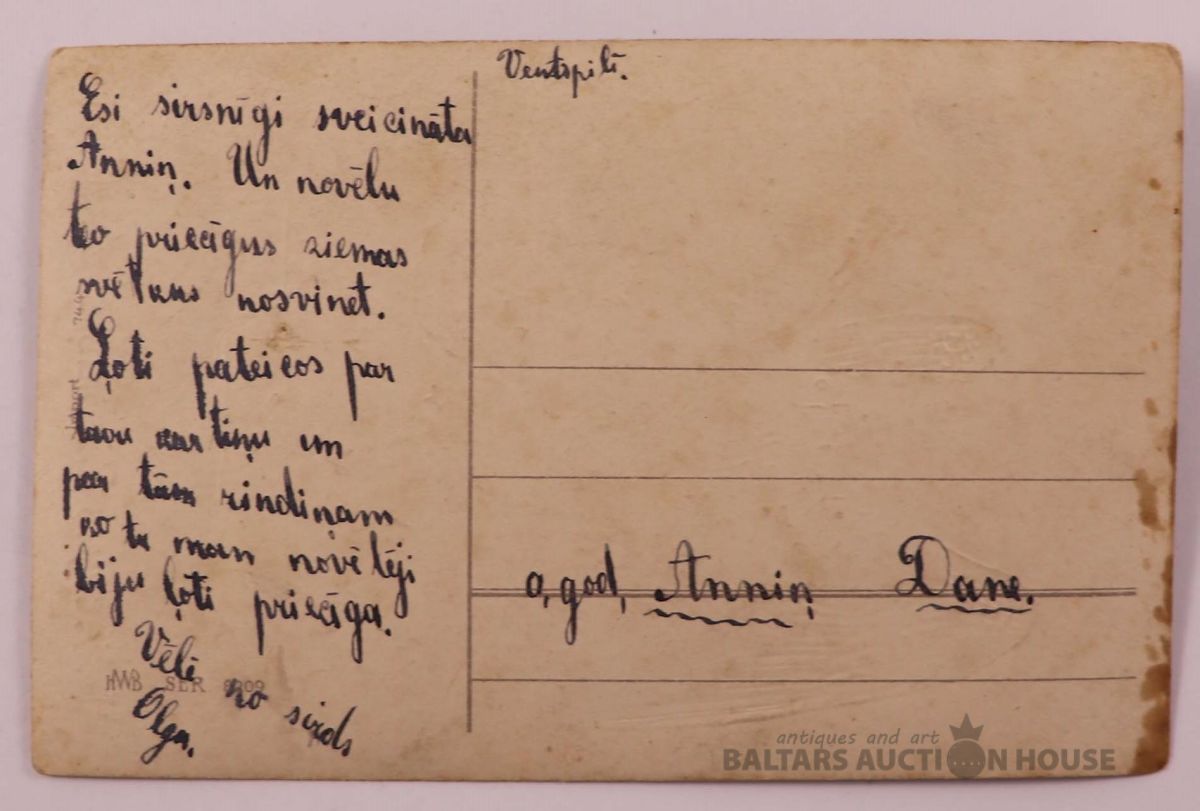 Esi sirsnīgi sveicināta
Anniņ. Un novēlu
to priecīgus ziemas
svētkus nosvinet.
Ļoti pateicos par
tavu kartiņu un
par tām rindiņam
ko tu man novēlēji
biju ļoti priecīga.
Vēlē no sirds
Olga.
HWB SER
Ventspilī.
a, god, Anniņ Dane.
antiques and art
BALTARS AUCTION HOUSE